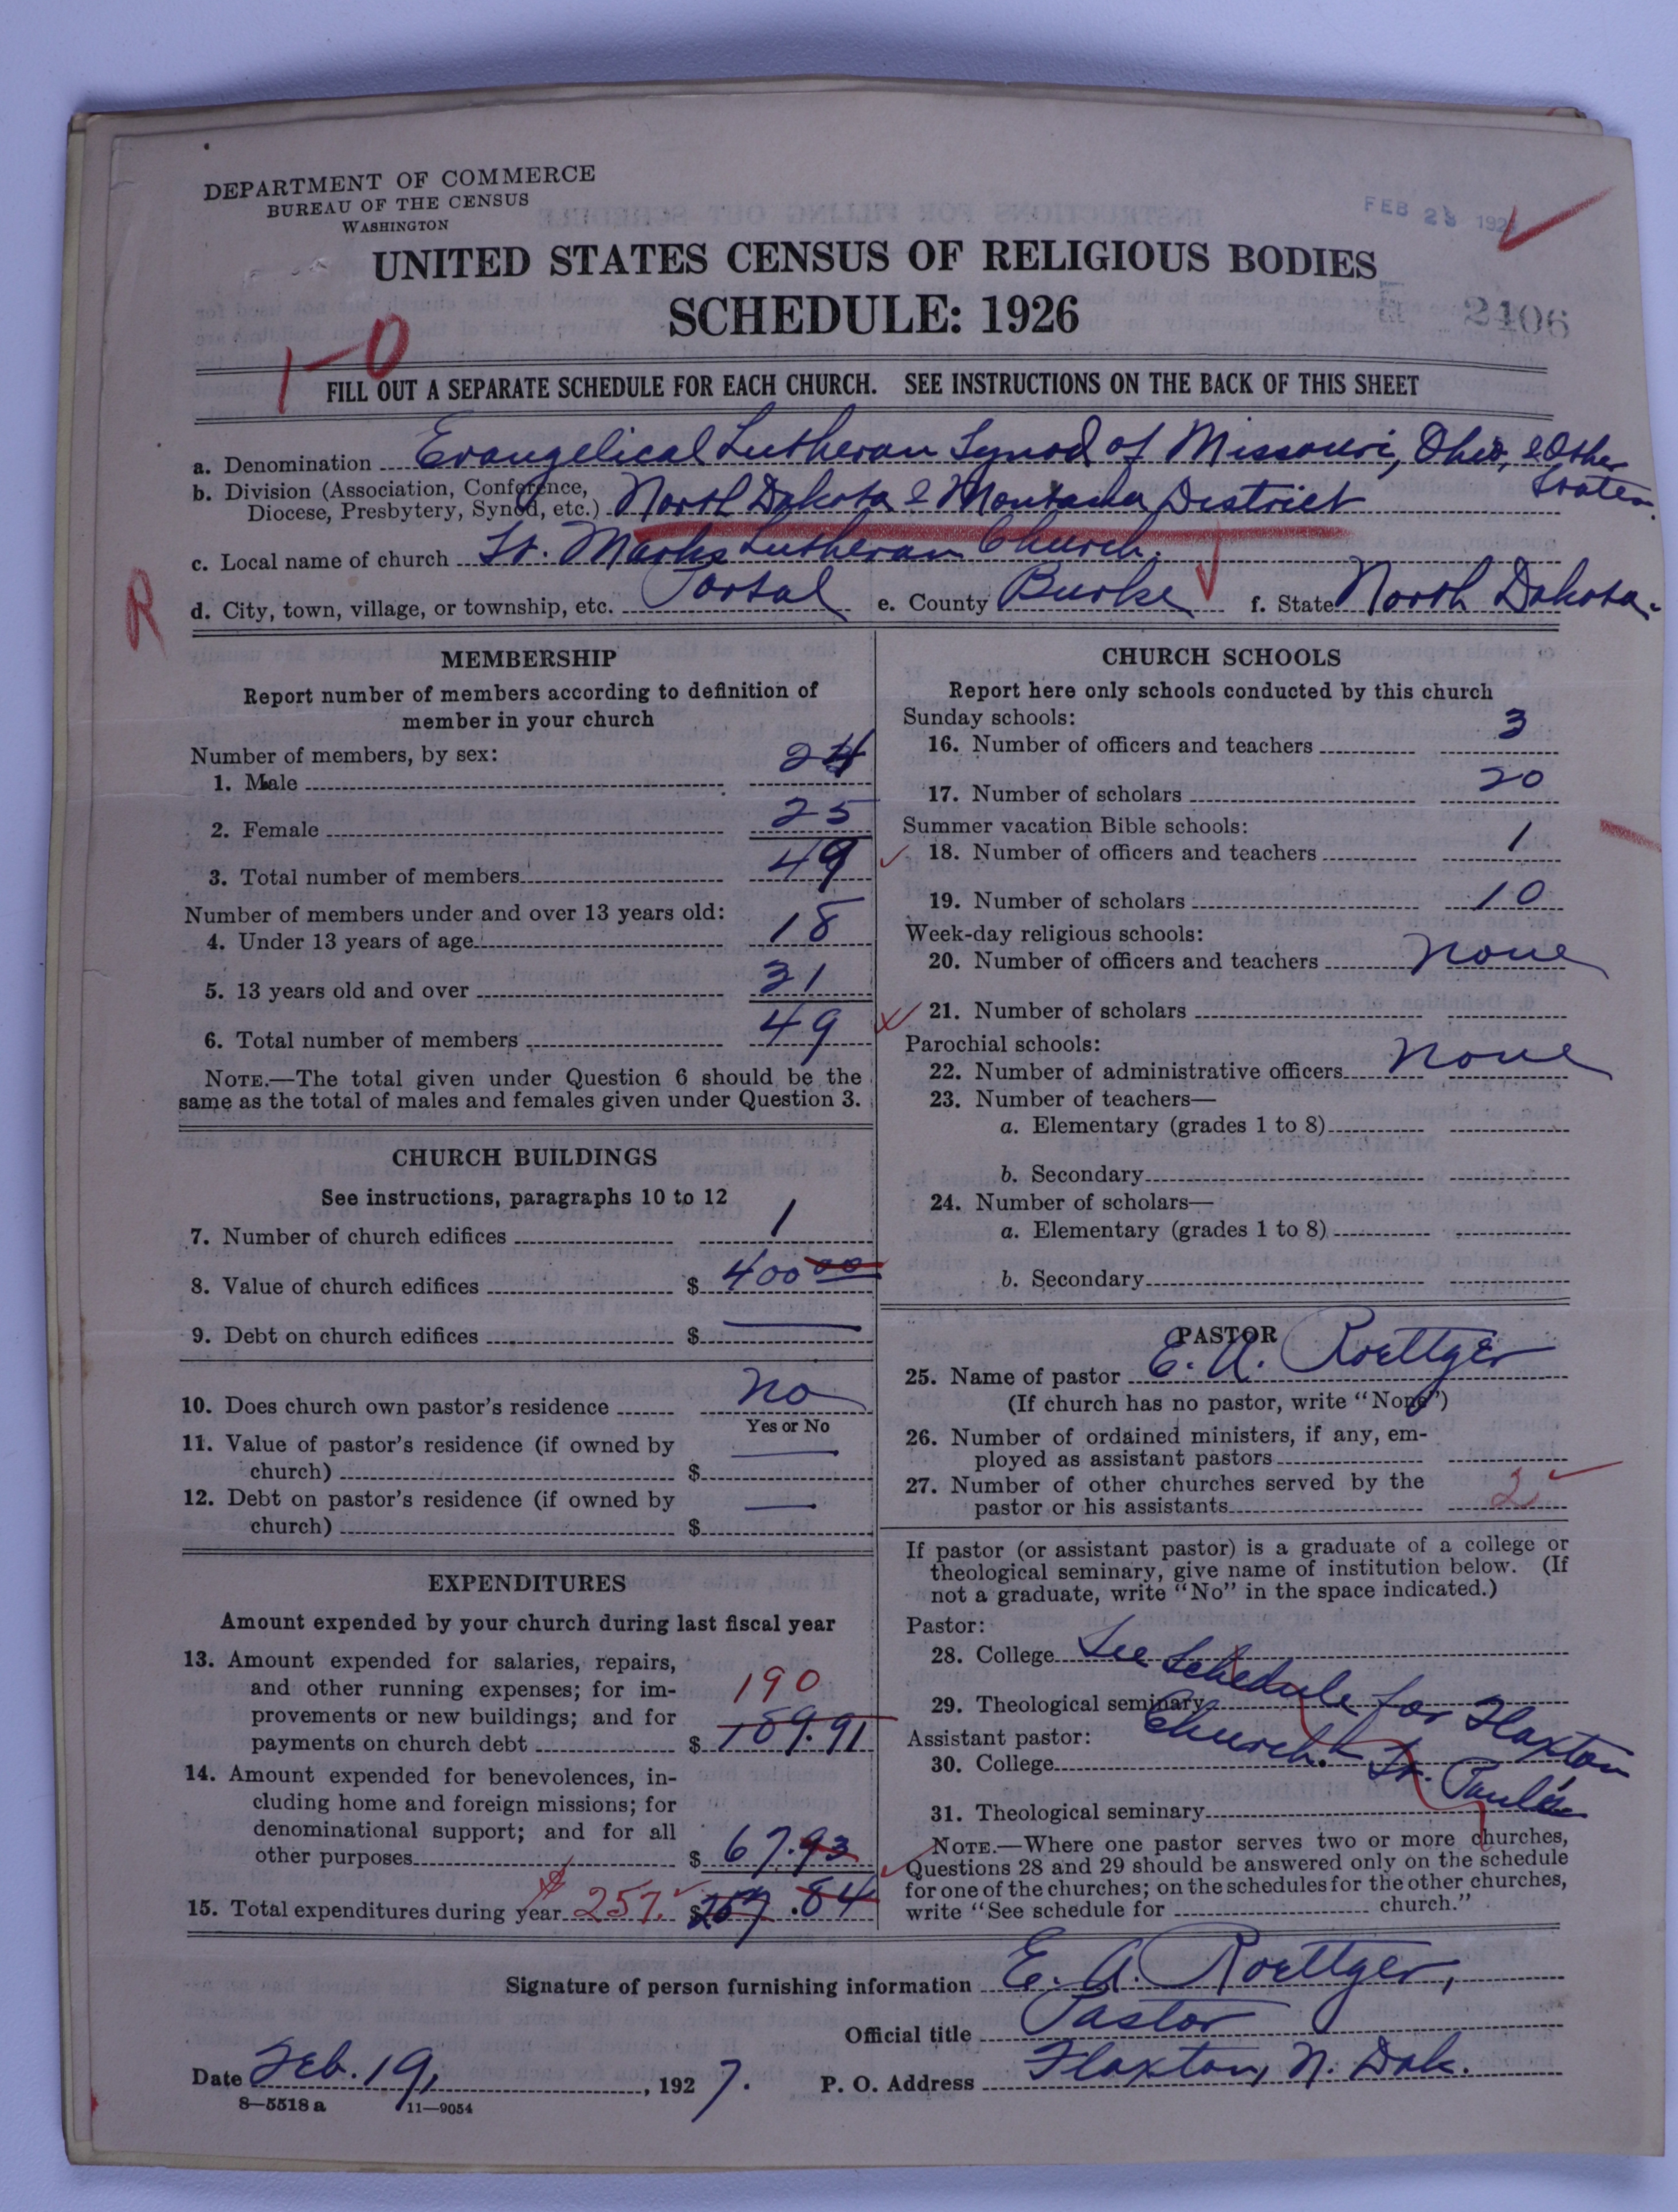 DEPARTMENT OF COMMERCE
BUREAU OF THE CENSUS
WASHINGTON
FEB 28 192
UNITED STATES CENSUS OF RELIGIOUS BODIES
SCHEDULE: 1926
2406
1-0
FILL OUT A SEPARATE SCHEDULE FOR EACH CHURCH. SEE INSTRUCTIONS ON THE BACK OF THIS SHEET
a. Denomination Evangelical Lutheran Synod of Missouri, Ohio, & Other States.
b. Division (Association, Conference,
Diocese, Presbytery, Synod, etc.) North Dakota & Montana District
c. Local name of church St. Marks Lutheran Church.
R
d. City, town, village, or township, etc. Portal e. County Burke f. State North Dakota.
MEMBERSHIP
Report number of members according to definition of
member in your church
Number of members, by sex:
1. Male 24
2. Female 25
3. Total number of members 49
Number of members under and over 13 years old:
4. Under 13 years of age 18
5. 13 years old and over 31
6. Total number of members 49
NOTE.—The total given under Question 6 should be the
same as the total of males and females given under Question 3.
CHURCH BUILDINGS
See instructions, paragraphs 10 to 12
7. Number of church edifices 1
8. Value of church edifices $ 400 00
9. Debt on church edifices $ —
10. Does church own pastor's residence no
Yes or No
11. Value of pastor's residence (if owned by
church) $ —
12. Debt on pastor's residence (if owned by
church) $ —
EXPENDITURES
Amount expended by your church during last fiscal year
13. Amount expended for salaries, repairs,
and other running expenses; for im-
provements or new buildings; and for 190
payments on church debt $ 189.91
14. Amount expended for benevolences, in-
cluding home and foreign missions; for
denominational support; and for all
other purposes $ 67.93
15. Total expenditures during year $ 257. $ 257.84
CHURCH SCHOOLS
Report here only schools conducted by this church
Sunday schools:
16. Number of officers and teachers 3
17. Number of scholars 20
Summer vacation Bible schools:
18. Number of officers and teachers 1
19. Number of scholars 10
Week-day religious schools:
20. Number of officers and teachers none
21. Number of scholars
Parochial schools:
22. Number of administrative officers none
23. Number of teachers—
a. Elementary (grades 1 to 8)
b. Secondary
24. Number of scholars—
a. Elementary (grades 1 to 8)
b. Secondary
PASTOR
25. Name of pastor E. A. Roettger
(If church has no pastor, write "None")
26. Number of ordained ministers, if any, em-
ployed as assistant pastors
27. Number of other churches served by the
pastor or his assistants 2
If pastor (or assistant pastor) is a graduate of a college or
theological seminary, give name of institution below. (If
not a graduate, write "No" in the space indicated.)
Pastor:
28. College See Schedule for Flaxton
29. Theological seminary Church. – St. Paul's
Assistant pastor:
30. College
31. Theological seminary
NOTE.—Where one pastor serves two or more churches,
Questions 28 and 29 should be answered only on the schedule
for one of the churches; on the schedules for the other churches,
write "See schedule for church."
Signature of person furnishing information E. A. Roettger,
Official title Pastor
Date Feb. 19, , 1927. P. O. Address Flaxton, N. Dak.
8—5518 a 11—9054